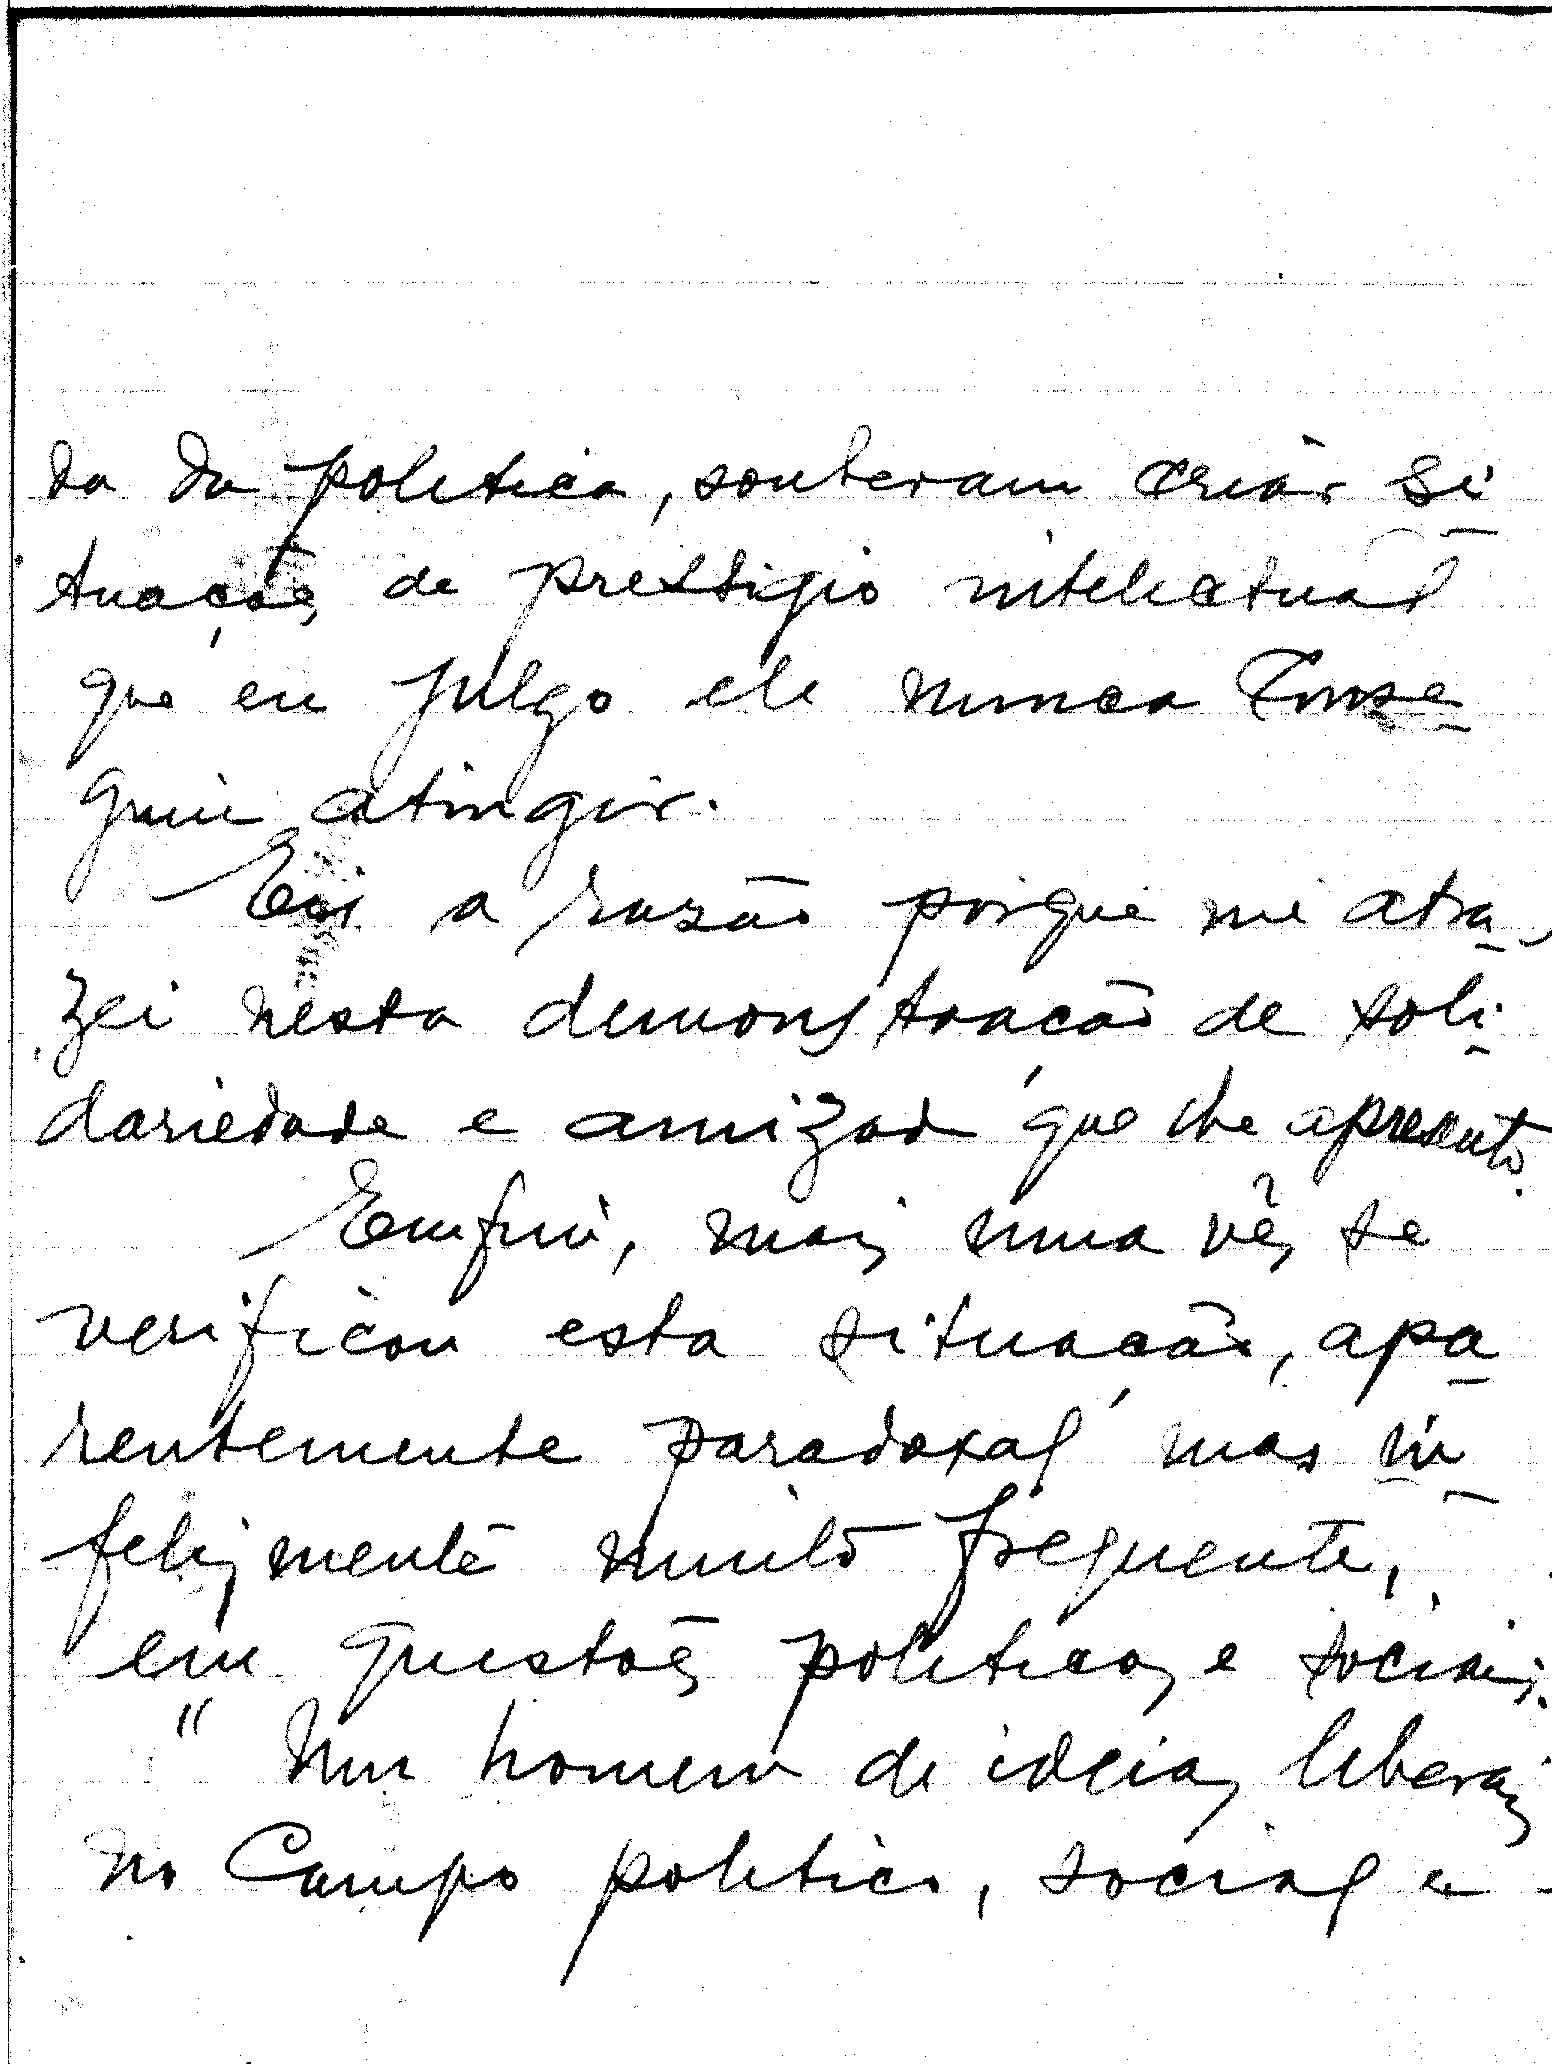 da da politica, souberam criar si-
tuações de prestigio intelectual
que eu julgo ele nunca conse-
guiu atingir.
Eis a razão porque me atra-
zei nesta demonstração de soli-
dariedade e amizade que lhe apresento.
Emfim, mais uma vês se
verificou esta situação, apa-
rentemente paradoxal mas in-
felizmente muito frequente,
em questões politicas e sociais.
" Um homem de ideias liberais
no campo politico, social e